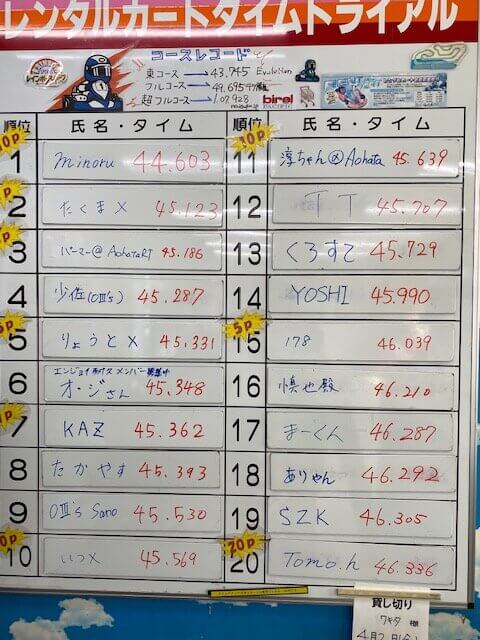 レンタルカートタイムトライアル
コースレコード
東コース → 43.745 Evolution
フルコース → 49.695
超フルコース → 1.07.928
birel
PACIFIC
順位 氏名・タイム 順位 氏名・タイム
1 minoru 44.603
2 たくま× 45.123
3 パーマー@AohataRT 45.186
4 少佐(OⅢ's) 45.287
5p
5 りょうと× 45.331
6 オ・ジさん 45.348
7 KAZ 45.362
8 たかやす 45.393
9 OⅢ's Sano 45.530
10 いつ× 45.569
11 淳ちゃん@Aohata 45.639
12 TT 45.707
13 くろすて 45.729
14 YOSHI 45.990
5p
15 178 46.039
16 慎也殿 46.210
17 まーくん 46.287
18 ありゃん 46.292
19 SZK 46.305
20p
20 Tomo.h 46.336
貸し切り
ワキタ 様